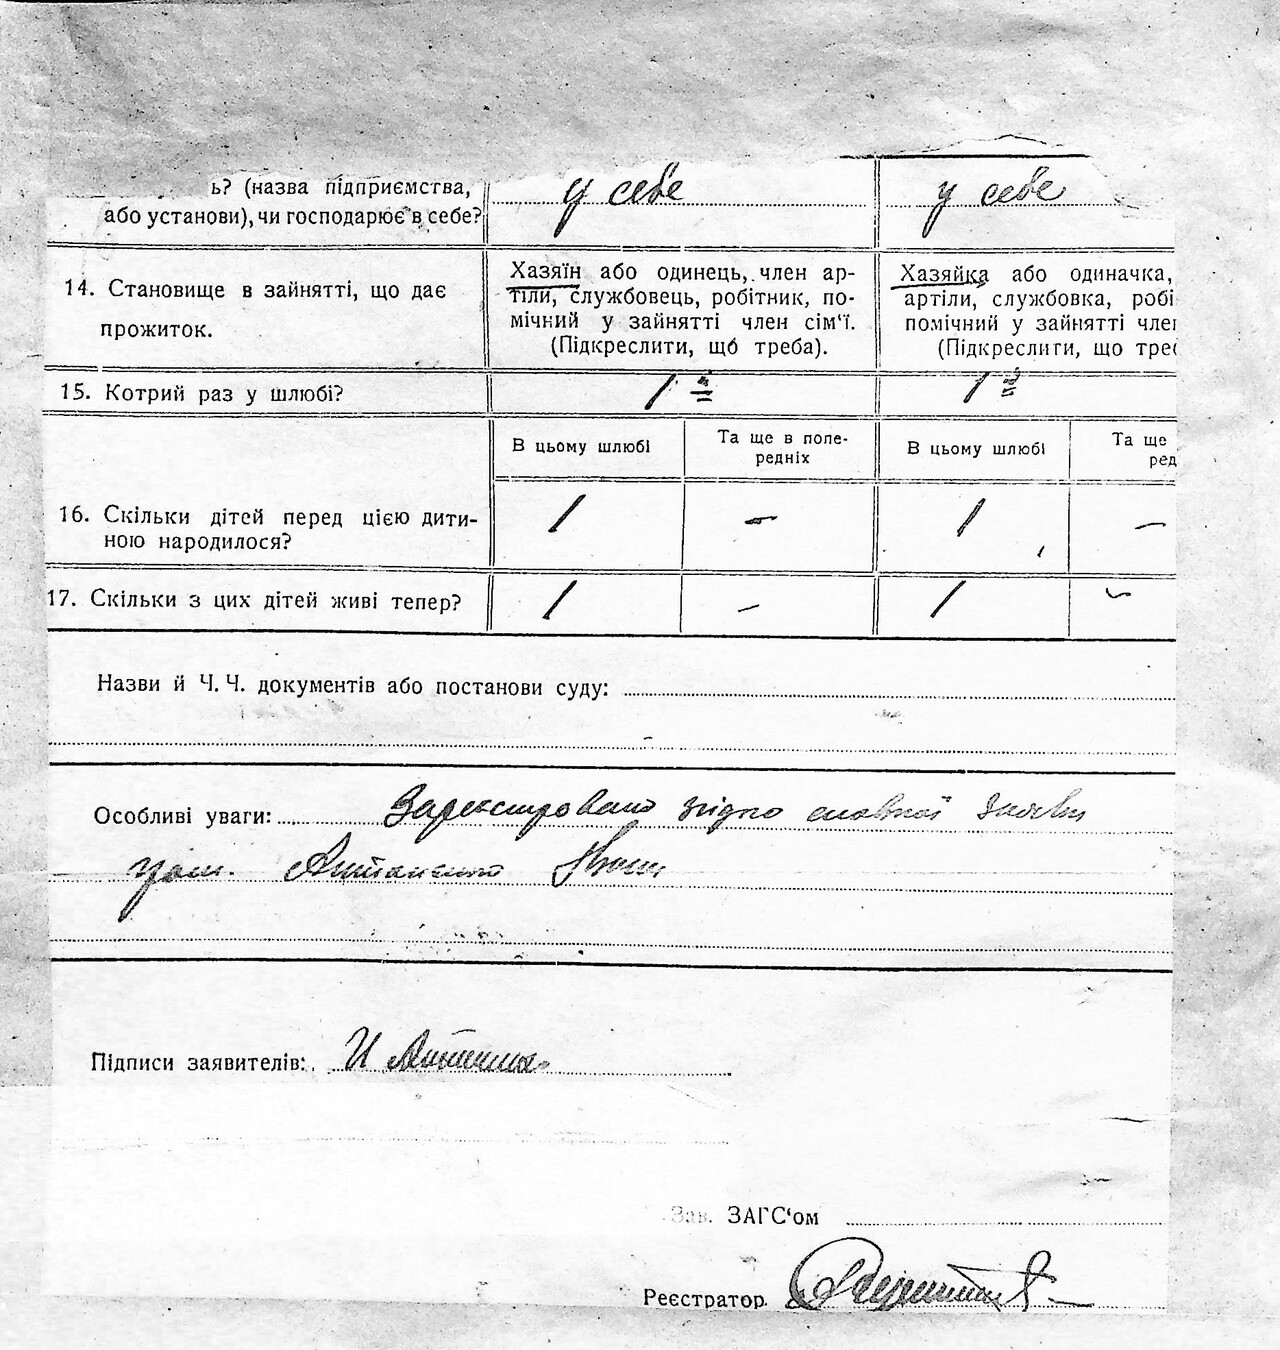 ь? (назва підприємства, у себе у себе
або установи), чи господарює в себе?
14. Становище в зайнятті, що дає прожиток.
Хазяїн або одинець, член ар-
тіли, службовець, робітник, по-
мічний у зайнятті член сім'ї.
(Підкреслити, що треба).
Хазяйка або одиначка,
артіли, службовка, робі
помічний у зайнятті член
(Підкреслити, що треб
15. Котрий раз у шлюбі? 1й 1й
В цьому шлюбі
Та ще в попе-
редніх
В цьому шлюбі
Та ще
ред
16. Скільки дітей перед цією дити- 1 — 1 —
ною народилося?
17. Скільки з цих дітей живі тепер? 1 — 1 —
Назви й Ч. Ч. документів або постанови суду:
Особливі уваги: Зареєстровано згідно словної заяви
гром.
Підписи заявителів: И
Зав. ЗАГС'ом
Реєстратор